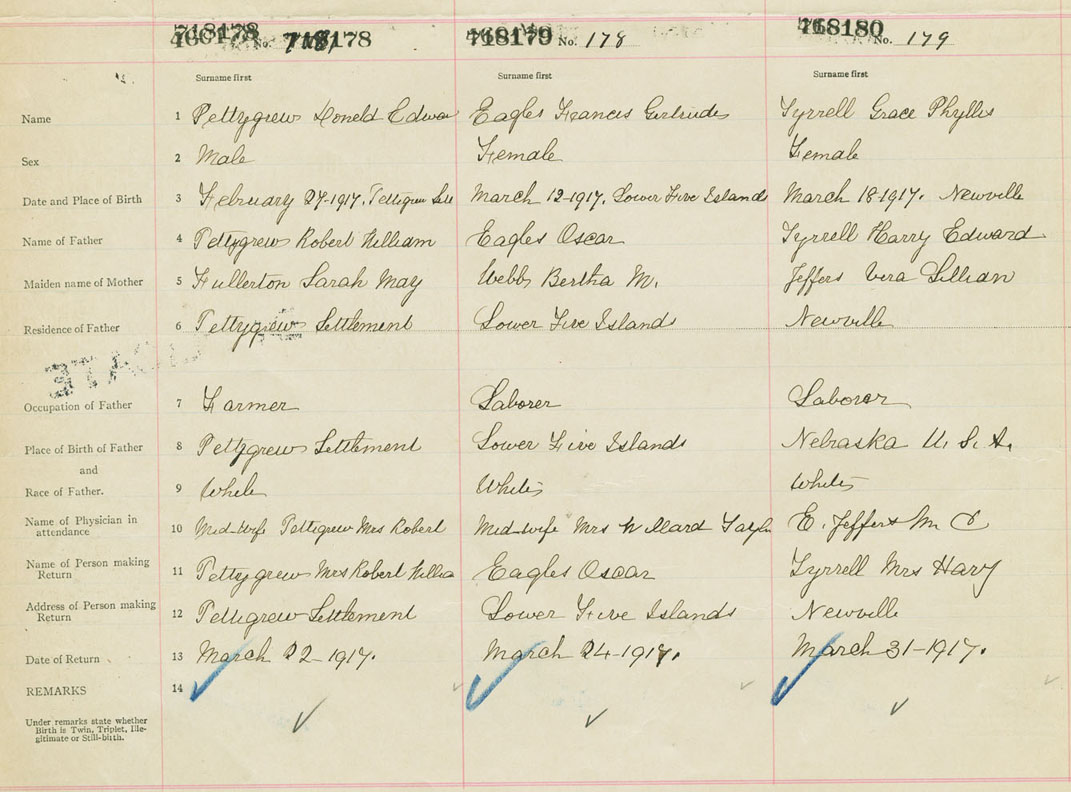 718178 No. 178 718179 No. 178 718180 No. 179
Surname first Surname first Surname first
Name 1 Pettygrew Donald Edwa Eagles Frances Gertrude Tyrrell Grace Phyllis
Sex 2 Male Female Female
Date and Place of Birth 3 February 27-1917. Pettigrew Sett March 12-1917. Lower Five Islands March 18-1917. Newville
Name of Father 4 Pettygrew Robert William Eagles Oscar Tyrrell Harry Edward
Maiden name of Mother 5 Fullerton Sarah May Webb Bertha M. Jeffers Vera Lillian
Residence of Father 6 Pettygrew Settlement Lower Five Islands Newville
Occupation of Father 7 Farmer Laborer Laborer
Place of Birth of Father 8 Pettygrew Settlement Lower Five Islands Nebraska U. S. A.
and
Race of Father. 9 White White White
Name of Physician in
attendance 10 Mid-wife Pettigrew Mrs Robert Mid-wife Mrs Willard Taylo E. Jeffers M
Name of Person making
Return 11 Pettygrew Mrs Robert Willia Eagles Oscar Tyrrell Mrs Harry
Address of Person making
Return 12 Pettigrew Settlement Lower Five Islands Newville
Date of Return 13 March 22-1917. March 24-1917. March 31-1917.
REMARKS 14
Under remarks state whether
Birth is Twin, Triplet, Ille-
gitimate or Still-birth.